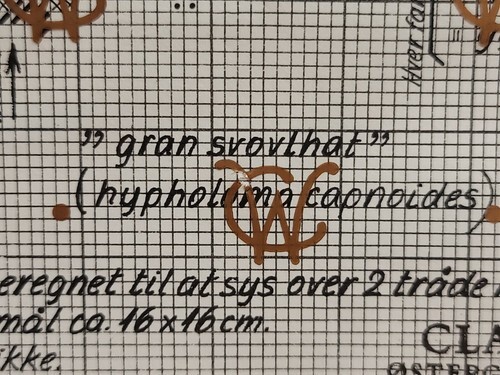 Hver
" gran svovlhat "
(hypholoma capnoides)
eregnet til at sys over 2 tråde
mål ca. 16 x 16 cm.
ikke.
CLA
ØSTERG